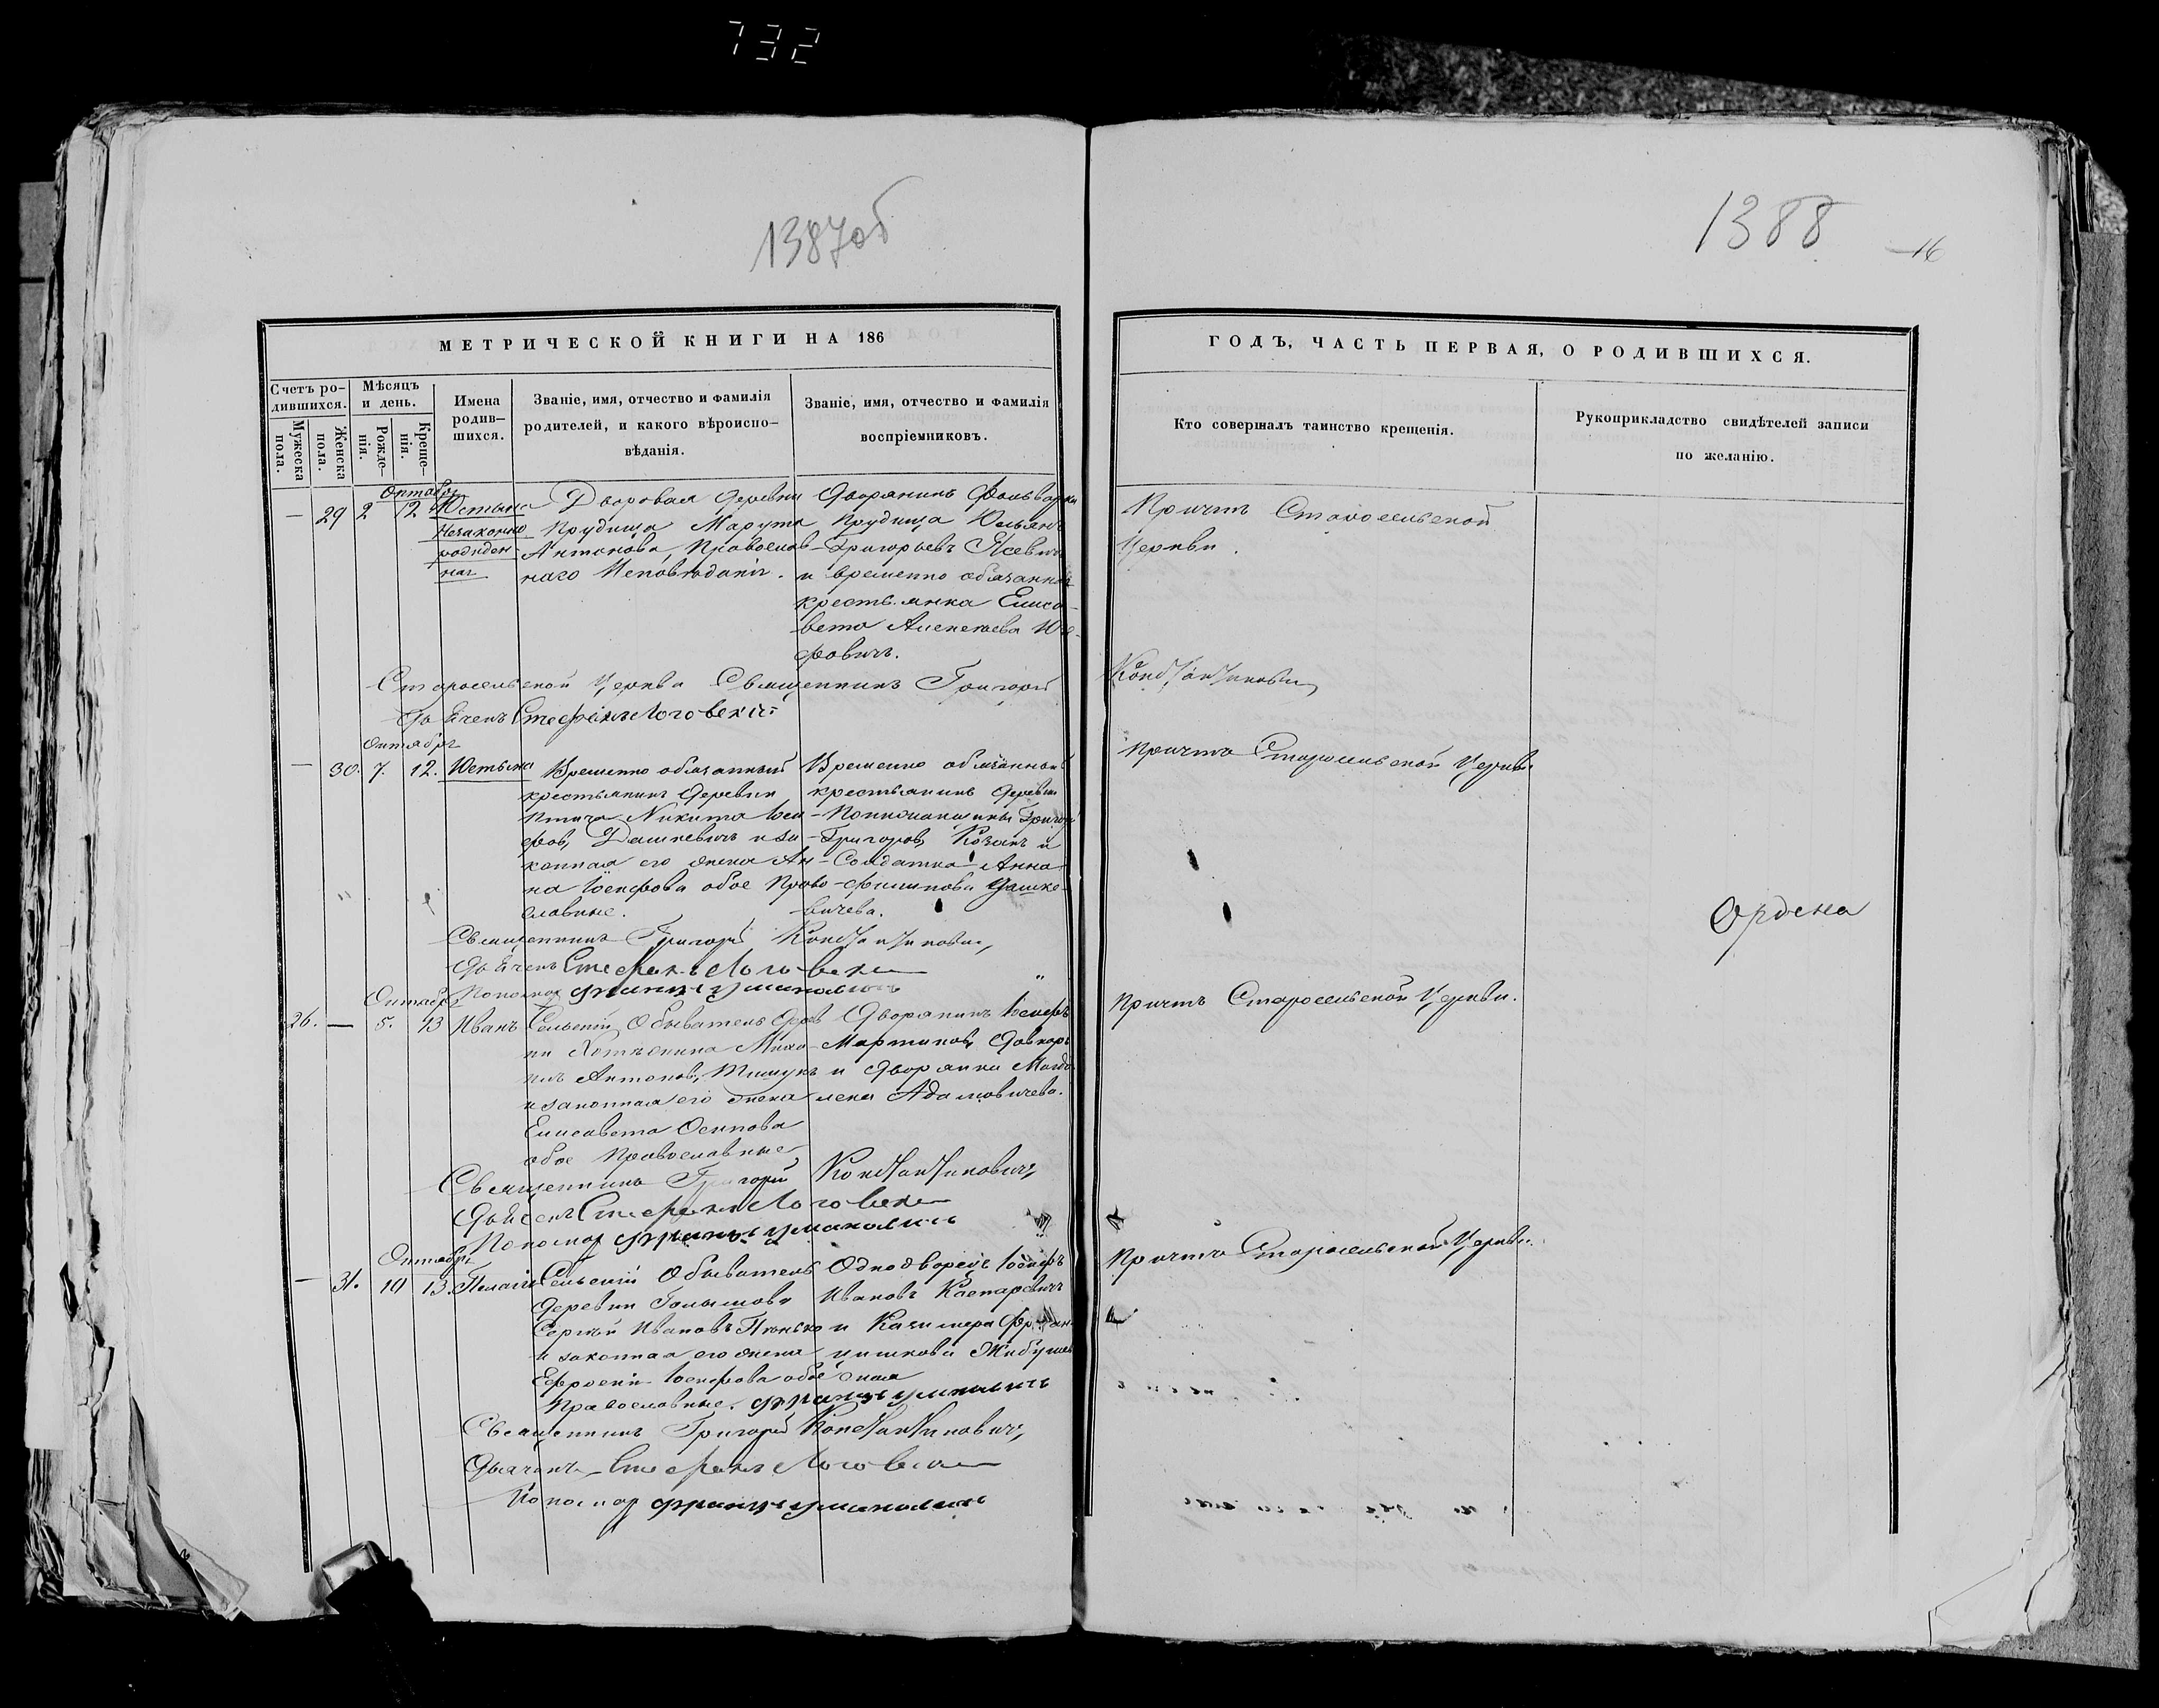 732
1387об
1388
16
МЕТРИЧЕСКОЙ КНИГИ НА 186
Счетъ родившихся.
Мужеска пола.
Женска пола.
Мѣсяцъ и день.
Рожденія.
Крещенія.
Имена родившихся.
Званіе, имя, отчество и фамилія родителей, и какого вѣроисповѣданія.
Званіе, имя, отчество и фамилія воспріемниковъ.
ГОДЪ, ЧАСТЬ ПЕРВАЯ, О РОДИВШИХСЯ.
Кто совершалъ таинство крещенія.
Рукоприкладство свидѣтелей записи по желанію.
Октябрь
— 29 2 12 Юстына
Незаконно
рожден
ная
Дворовая деревни
Прудища Марута
Антонова, Православ-
наго Исповѣданія.
Дворянинъ фольварка
Прудища Юльянъ
Григорьевъ
и временно обязанная
крестьянка Елиса-
вета Алексеева
фовичъ.
Причтъ Старосельской
Церкви.
Старосельской Церкви Священникъ Григорій
Константиновичъ
Дьячекъ Стефанъ Логовскій
Октябрь
— 30. 7. 12. Юстына
Временно обязанный
крестьянинъ деревни
Птича Никита Іоси-
фов, Дашкевичъ и за-
конная его жена Ан-
на Іосифова обое Право-
славные.
Временно обязанный
крестьянинъ деревни
Григорій
Григоров, Козакъ и
Солдатка Анна
Филипова Дашке-
вичева.
Причтъ Старосельской Церкви
Ордена
Священникъ Григорій Константинович,
Дьячекъ Стефанъ Логовски
Пономар Францъ
Октябрь
26. — 5. 13 Иванъ
Сельскій Обыватель дерев
ни Хотѣжина Миха-
илъ Антонов, Тишукъ
и законная его жена
Елисавета Осипова
обое Православные,
Дворянинъ Іосифъ
Мартинов,
и Дворянка Магда
лена Адамовичева.
Причтъ Старосельской Церкви.
Священникъ Григорій Константинович,
Дьячекъ Стефанъ Логовски
Пономар Францъ
Октябрь
— 31. 10 13. Пелагія
Сельскій Обыватель
деревни
Сергѣй Ивановъ
и законная его жена
Ефросинія Іосифова обое
Православные.
Однодворецъ Іосифъ
Ивановъ Каспаровичъ
и Казимера Фран
цишкова
Причтъ Старосельской Церкви.
Священникъ Григорій Константинович,
Дьячекъ Стефанъ Логовски
Пономар Францъ